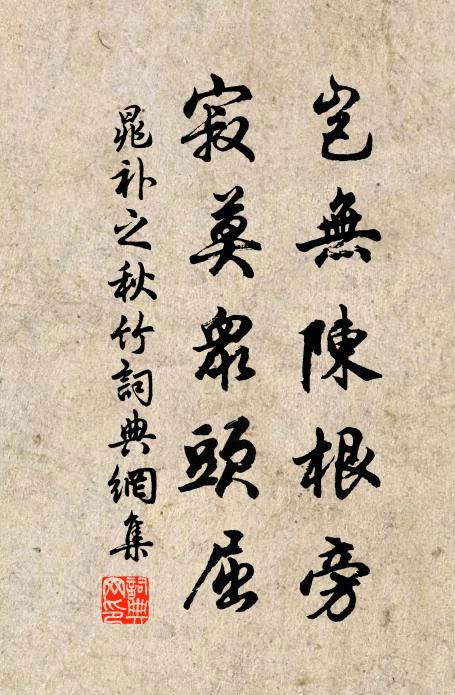 豈無陳根旁
寂莫衆頭屈
晁补之秋竹詞典網集
詞典網印